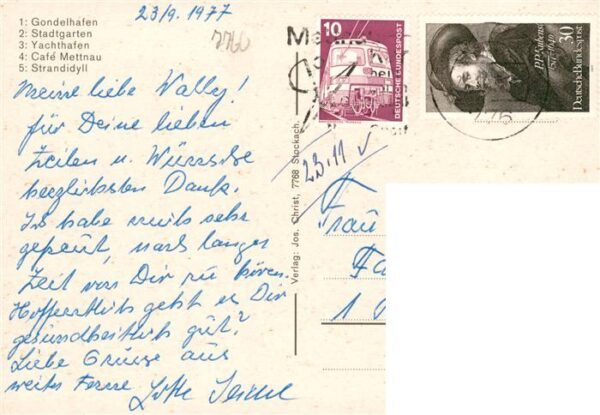 23/9. 1977
7760
1: Gondelhafen
2: Stadtgarten
3: Yachthafen
4: Café Mettnau
5: Strandidyll
Meine liebe Wally!
für Deine lieben
Zeilen u. Wünsche
herzlichsten Dank.
Ich habe mich sehr
gefreut, nach langer
Zeit von Dir zu hören.
Hoffentlich geht es Dir
gesundheitlich gut?
Liebe Grüsse aus
weiter Ferne
Verlag: Jos. Christ, 7768 Stockach,
10
DEUTSCHE BUNDESPOST
P.P. Rubens
1577-1640
30
Deutsche Bundespost
23.11 v
Frau